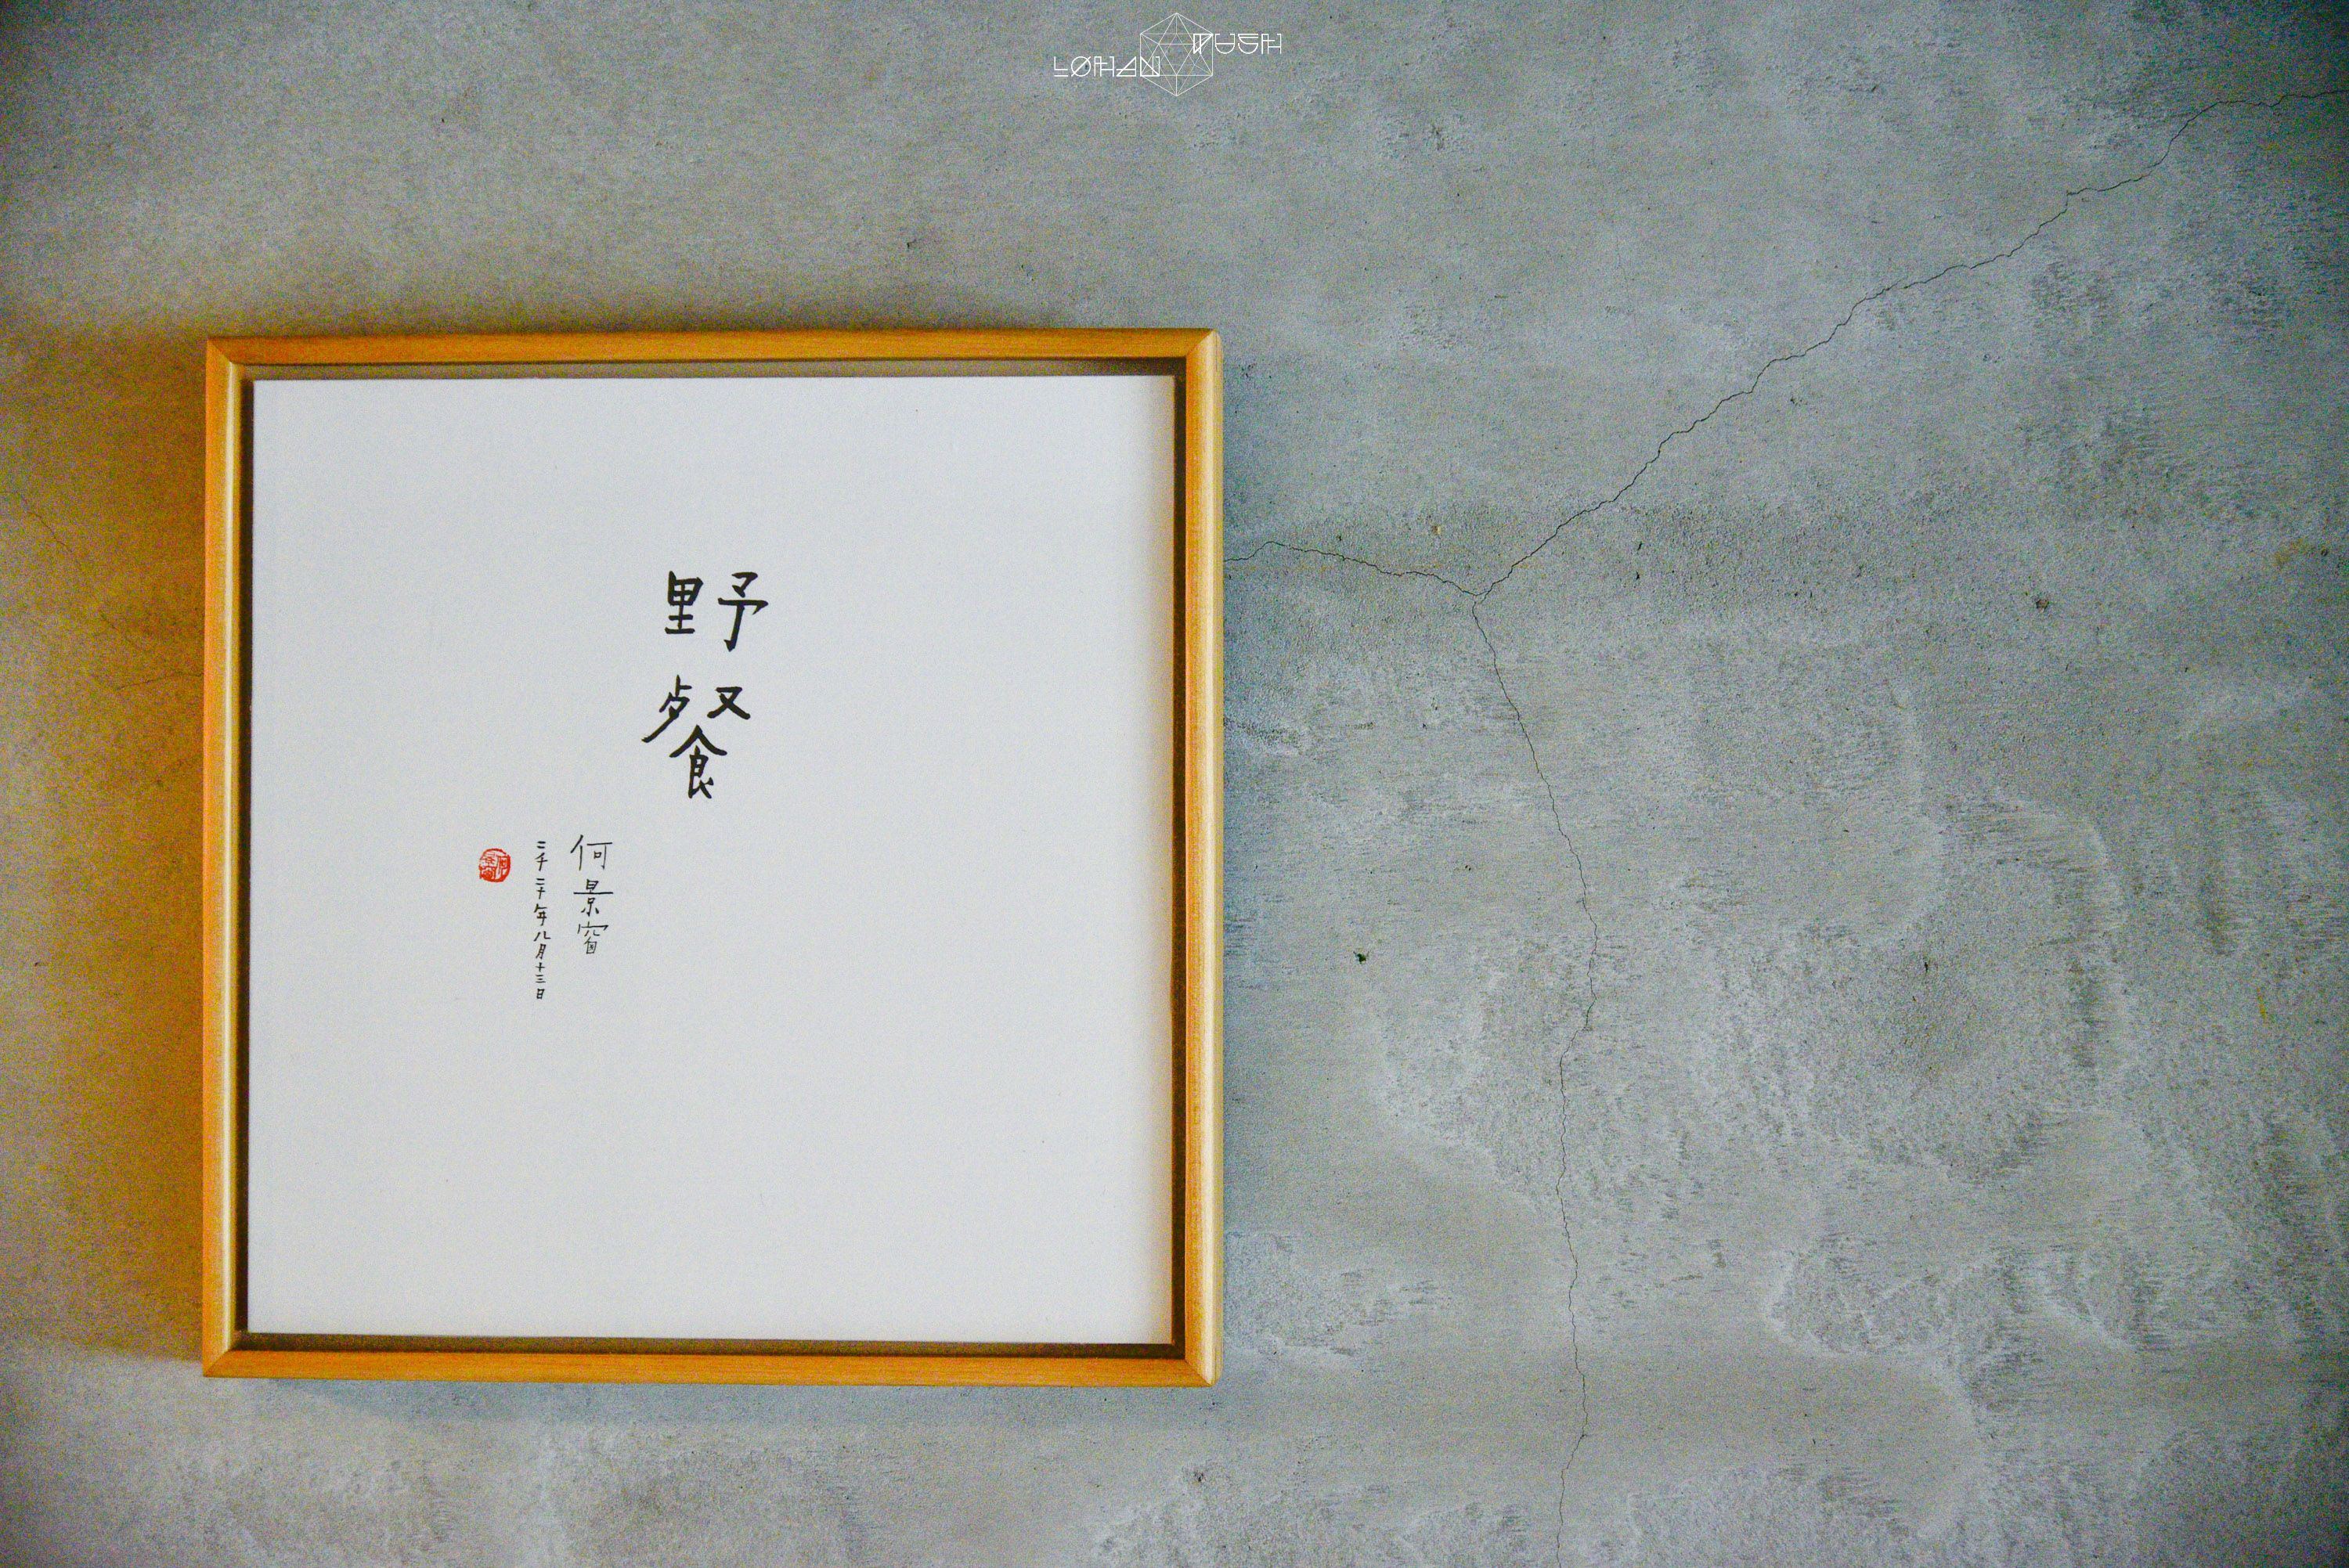 LOHAN MUSH
野餐
何景窗
二千二十年八月十三日